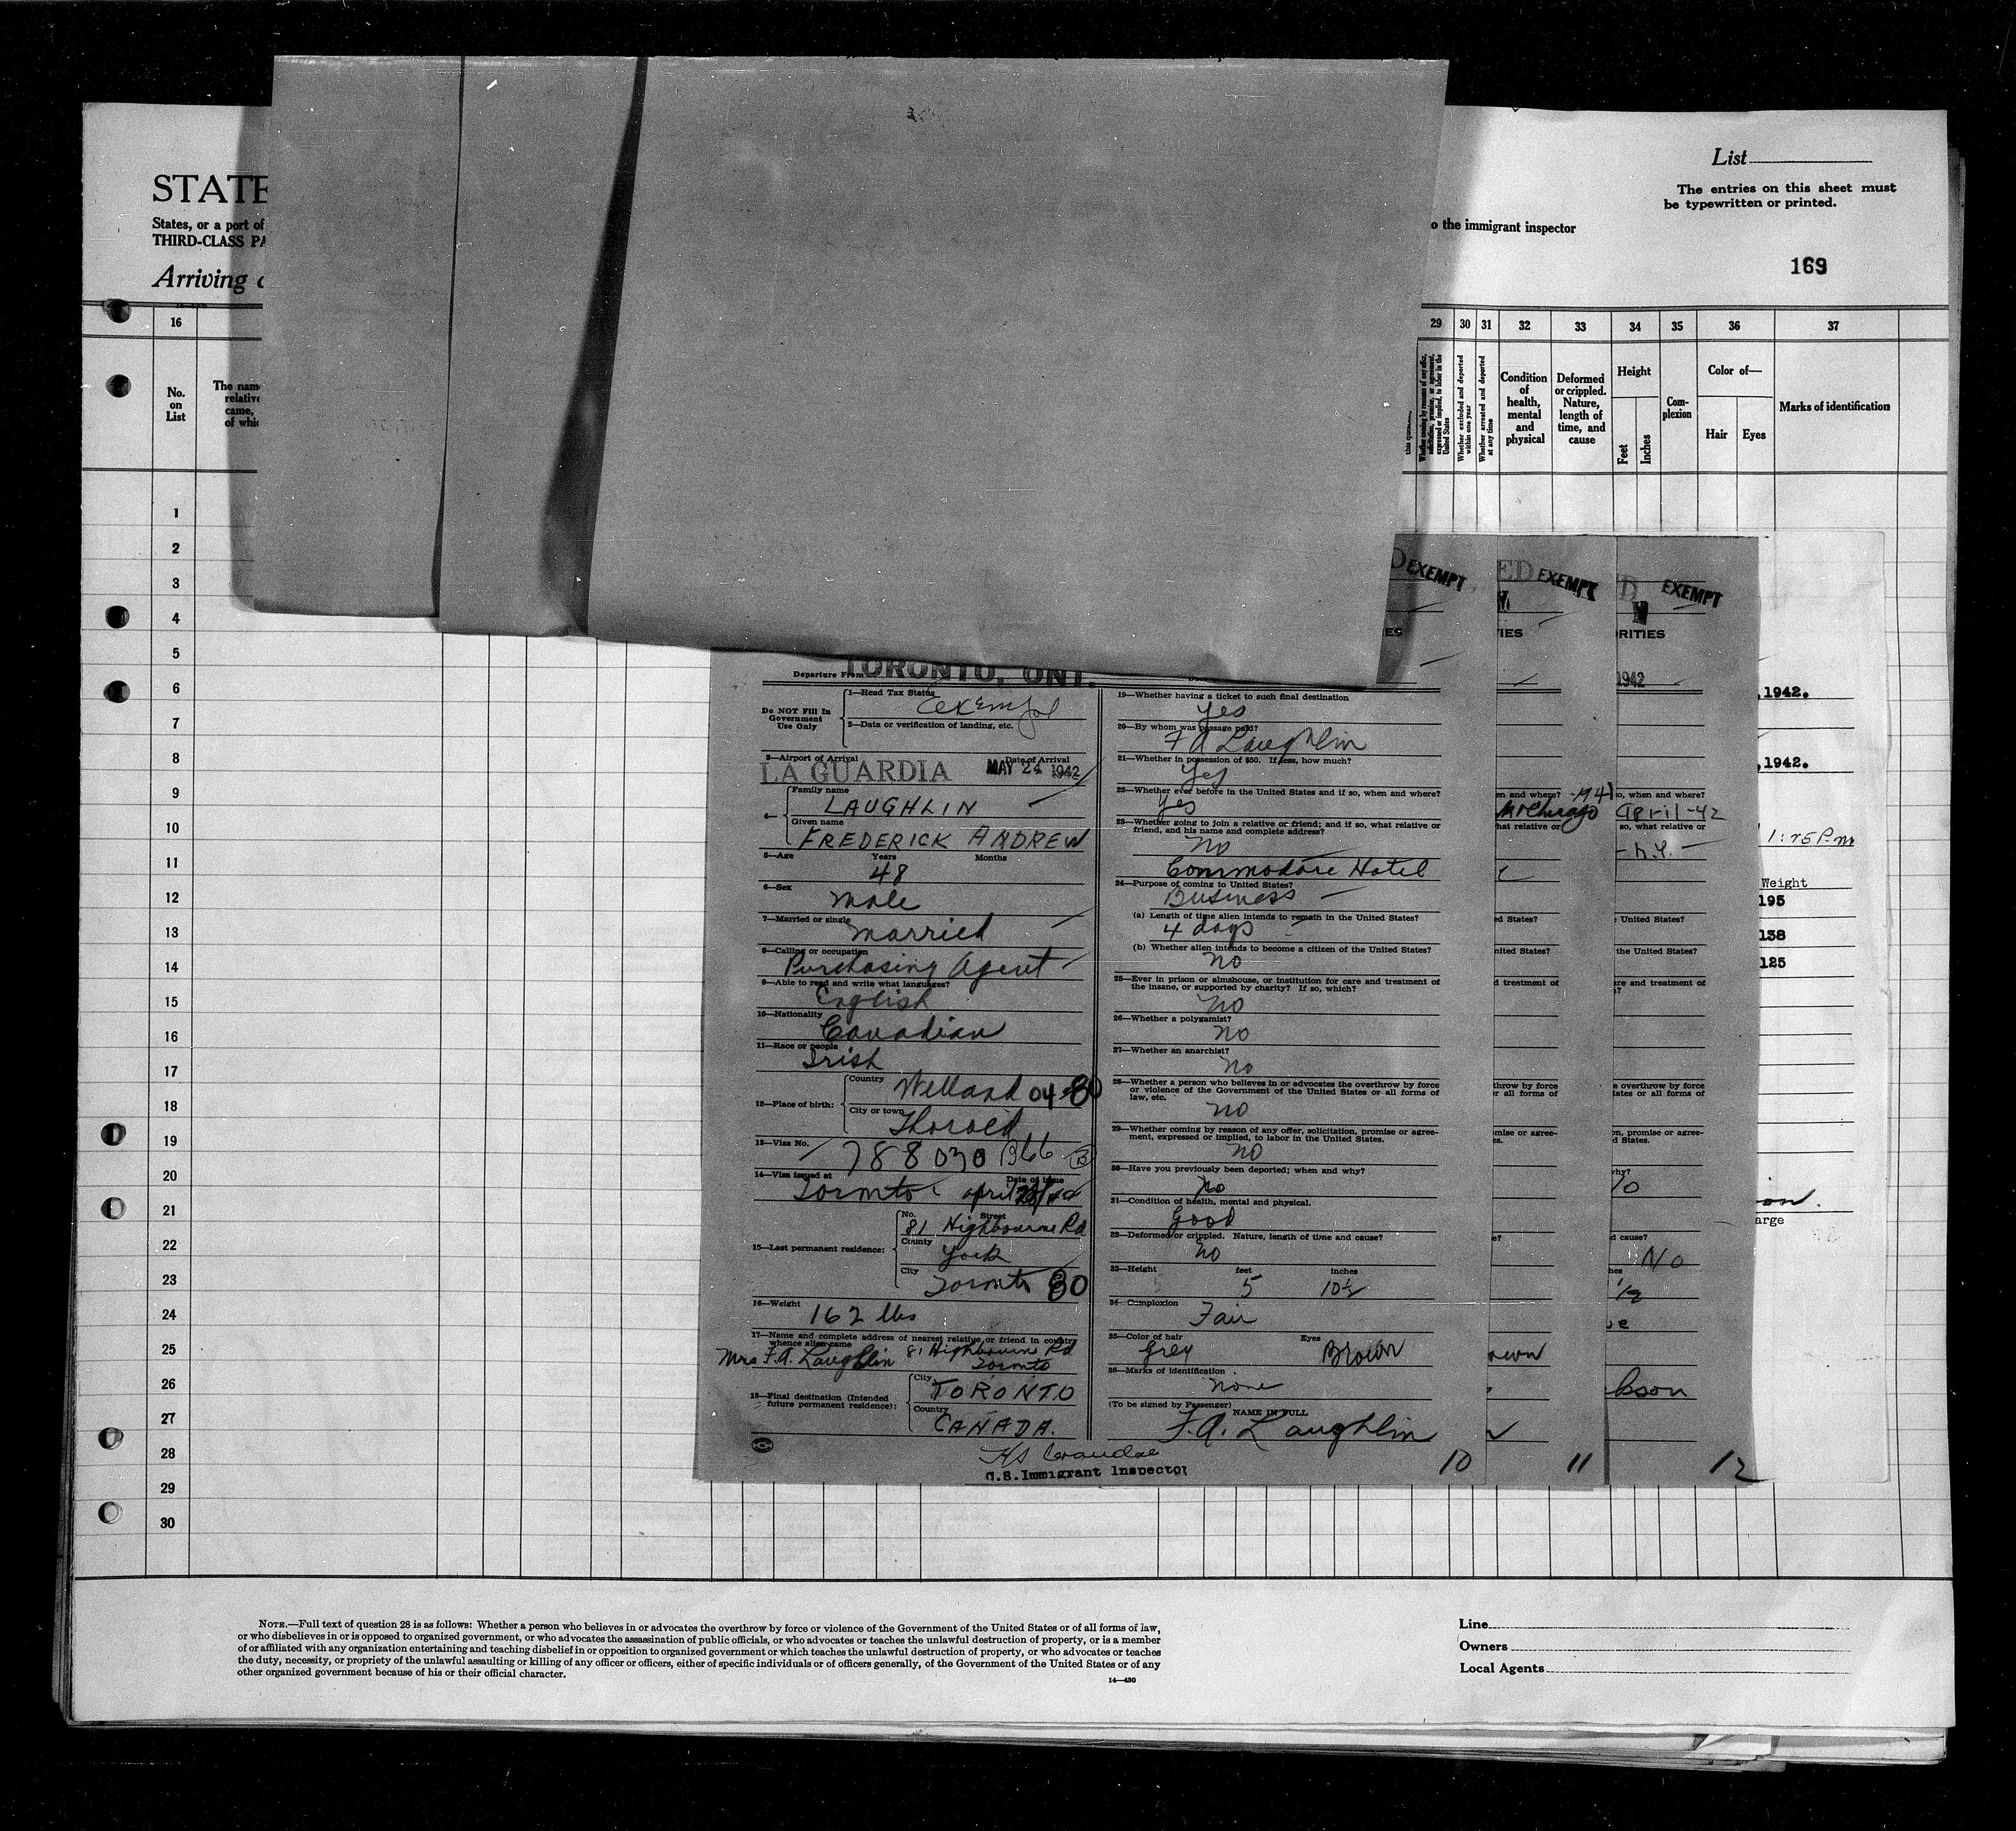 STATE
States, or a port of
THIRD-CLASS PA
Arriving
List
The entries on this sheet must
be typewritten or printed.
o the immigrant inspector
169
16
29 30 31 32 33 34 35 36 37
No.
on
List
The nam
relativ
came,
of whic
Whether coming by reasons of any offer, solicitation, promise, or agreement, expressed or implied, to labor in the United States
Whether excluded and deported within one year
Whether arrested and deported at any time
Condition
of
health,
mental
and
physical
Deformed
or crippled.
Nature,
length of
time, and
cause
Height
Feet
Inches
Com-
plexion
Color of—
Hair
Eyes
Marks of identification
1
2
3
4
5
6
7
8
9
10
11
12
13
14
15
16
17
18
19
20
21
22
23
24
25
26
27
28
29
30
Departure From TORONTO, ONT.
Do NOT Fill In
Government
Use Only
1—Head Tax Status
Exempt
2—Data or verification of landing, etc.
3—Airport of Arrival
Date of Arrival
LA GUARDIA MAY 24 1942
4—
Family name
LAUGHLIN
Given name
FREDERICK ANDREW
5—Age Years Months
48
6—Sex
Male
7—Married or single
Married
8—Calling or occupation
Purchasing Agent
9—Able to read and write what languages?
English
10—Nationality
Canadian
11—Race or people
Irish
12—Place of birth:
Country
Welland 04-80
City or town
Thorold
13—Visa No.
788030 B66 B
14—Visa issued at
Date of Issue
Toronto april
15—Last permanent residence:
No. Street
81 Highbourne Rd
County
York
City
Toronto 80
16—Weight
162 lbs
17—Name and complete address of nearest relative or friend in country
whence alien came
Mrs F.A. Laughlin 81 Highbourne Rd
Toronto
18—Final destination (Intended
future permanent residence):
City
TORONTO
Country
CANADA.
19—Whether having a ticket to such final destination
Yes
20—By whom was passage paid?
F A Laughlin
21—Whether in possession of $50. If less, how much?
Yes
22—Whether ever before in the United States and if so, when and where?
Yes
23—Whether going to join a relative or friend; and if so, what relative or
friend, and his name and complete address?
No
Commodore Hotel
24—Purpose of coming to United States?
Business
(a) Length of time alien intends to remain in the United States?
4 days
(b) Whether alien intends to become a citizen of the United States?
no
25—Ever in prison or almshouse, or institution for care and treatment of
the insane, or supported by charity? If so, which?
No
26—Whether a polygamist?
no
27—Whether an anarchist?
no
28—Whether a person who believes in or advocates the overthrow by force
or violence of the Government of the United States or all forms of
law, etc.
no
29—Whether coming by reason of any offer, solicitation, promise or agree-
ment, expressed or implied, to labor in the United States.
no
30—Have you previously been deported; when and why?
No
31—Condition of health, mental and physical.
Good
32—Deformed or crippled. Nature, length of time and cause?
no
33—Height feet inches
5 10½
34—Complexion
Fair
35—Color of hair Eyes
Grey Brown
36—Marks of identification
none
(To be signed by Passenger)
NAME IN FULL
F.A. Laughlin
U.S. Immigrant Inspector
10
D EXEMPT
ES
ED EXEMPT
IES
en and where?
Chicago
hat relative or
ed States?
nited States?
d treatment of
throw by force
r all forms of
mise or agree-
es.
e?
own
11
D EXEMPT
RITIES
1942
o, when and where?
April-42
so, what relative or
- N.Y. -
United States?
the United States?
are and treatment of
e overthrow by force
tates or all forms of
on, promise or agree-
d States.
why?
d cause?
No
hes
½
kson
12
, 1942.
, 1942.
1:25 P.m
Weight
195
138
125
arge
NOTE.—Full text of question 28 is as follows: Whether a person who believes in or advocates the overthrow by force or violence of the Government of the United States or of all forms of law,
or who disbelieves in or is opposed to organized government, or who advocates the assassination of public officials, or who advocates or teaches the unlawful destruction of property, or is a member
of or affiliated with any organization entertaining and teaching disbelief in or opposition to organized government or which teaches the unlawful destruction of property, or who advocates or teaches
the duty, necessity, or propriety of the unlawful assaulting or killing of any officer or officers, either of specific individuals or of officers generally, of the Government of the United States or of any
other organized government because of his or their official character.
14—430
Line
Owners
Local Agents